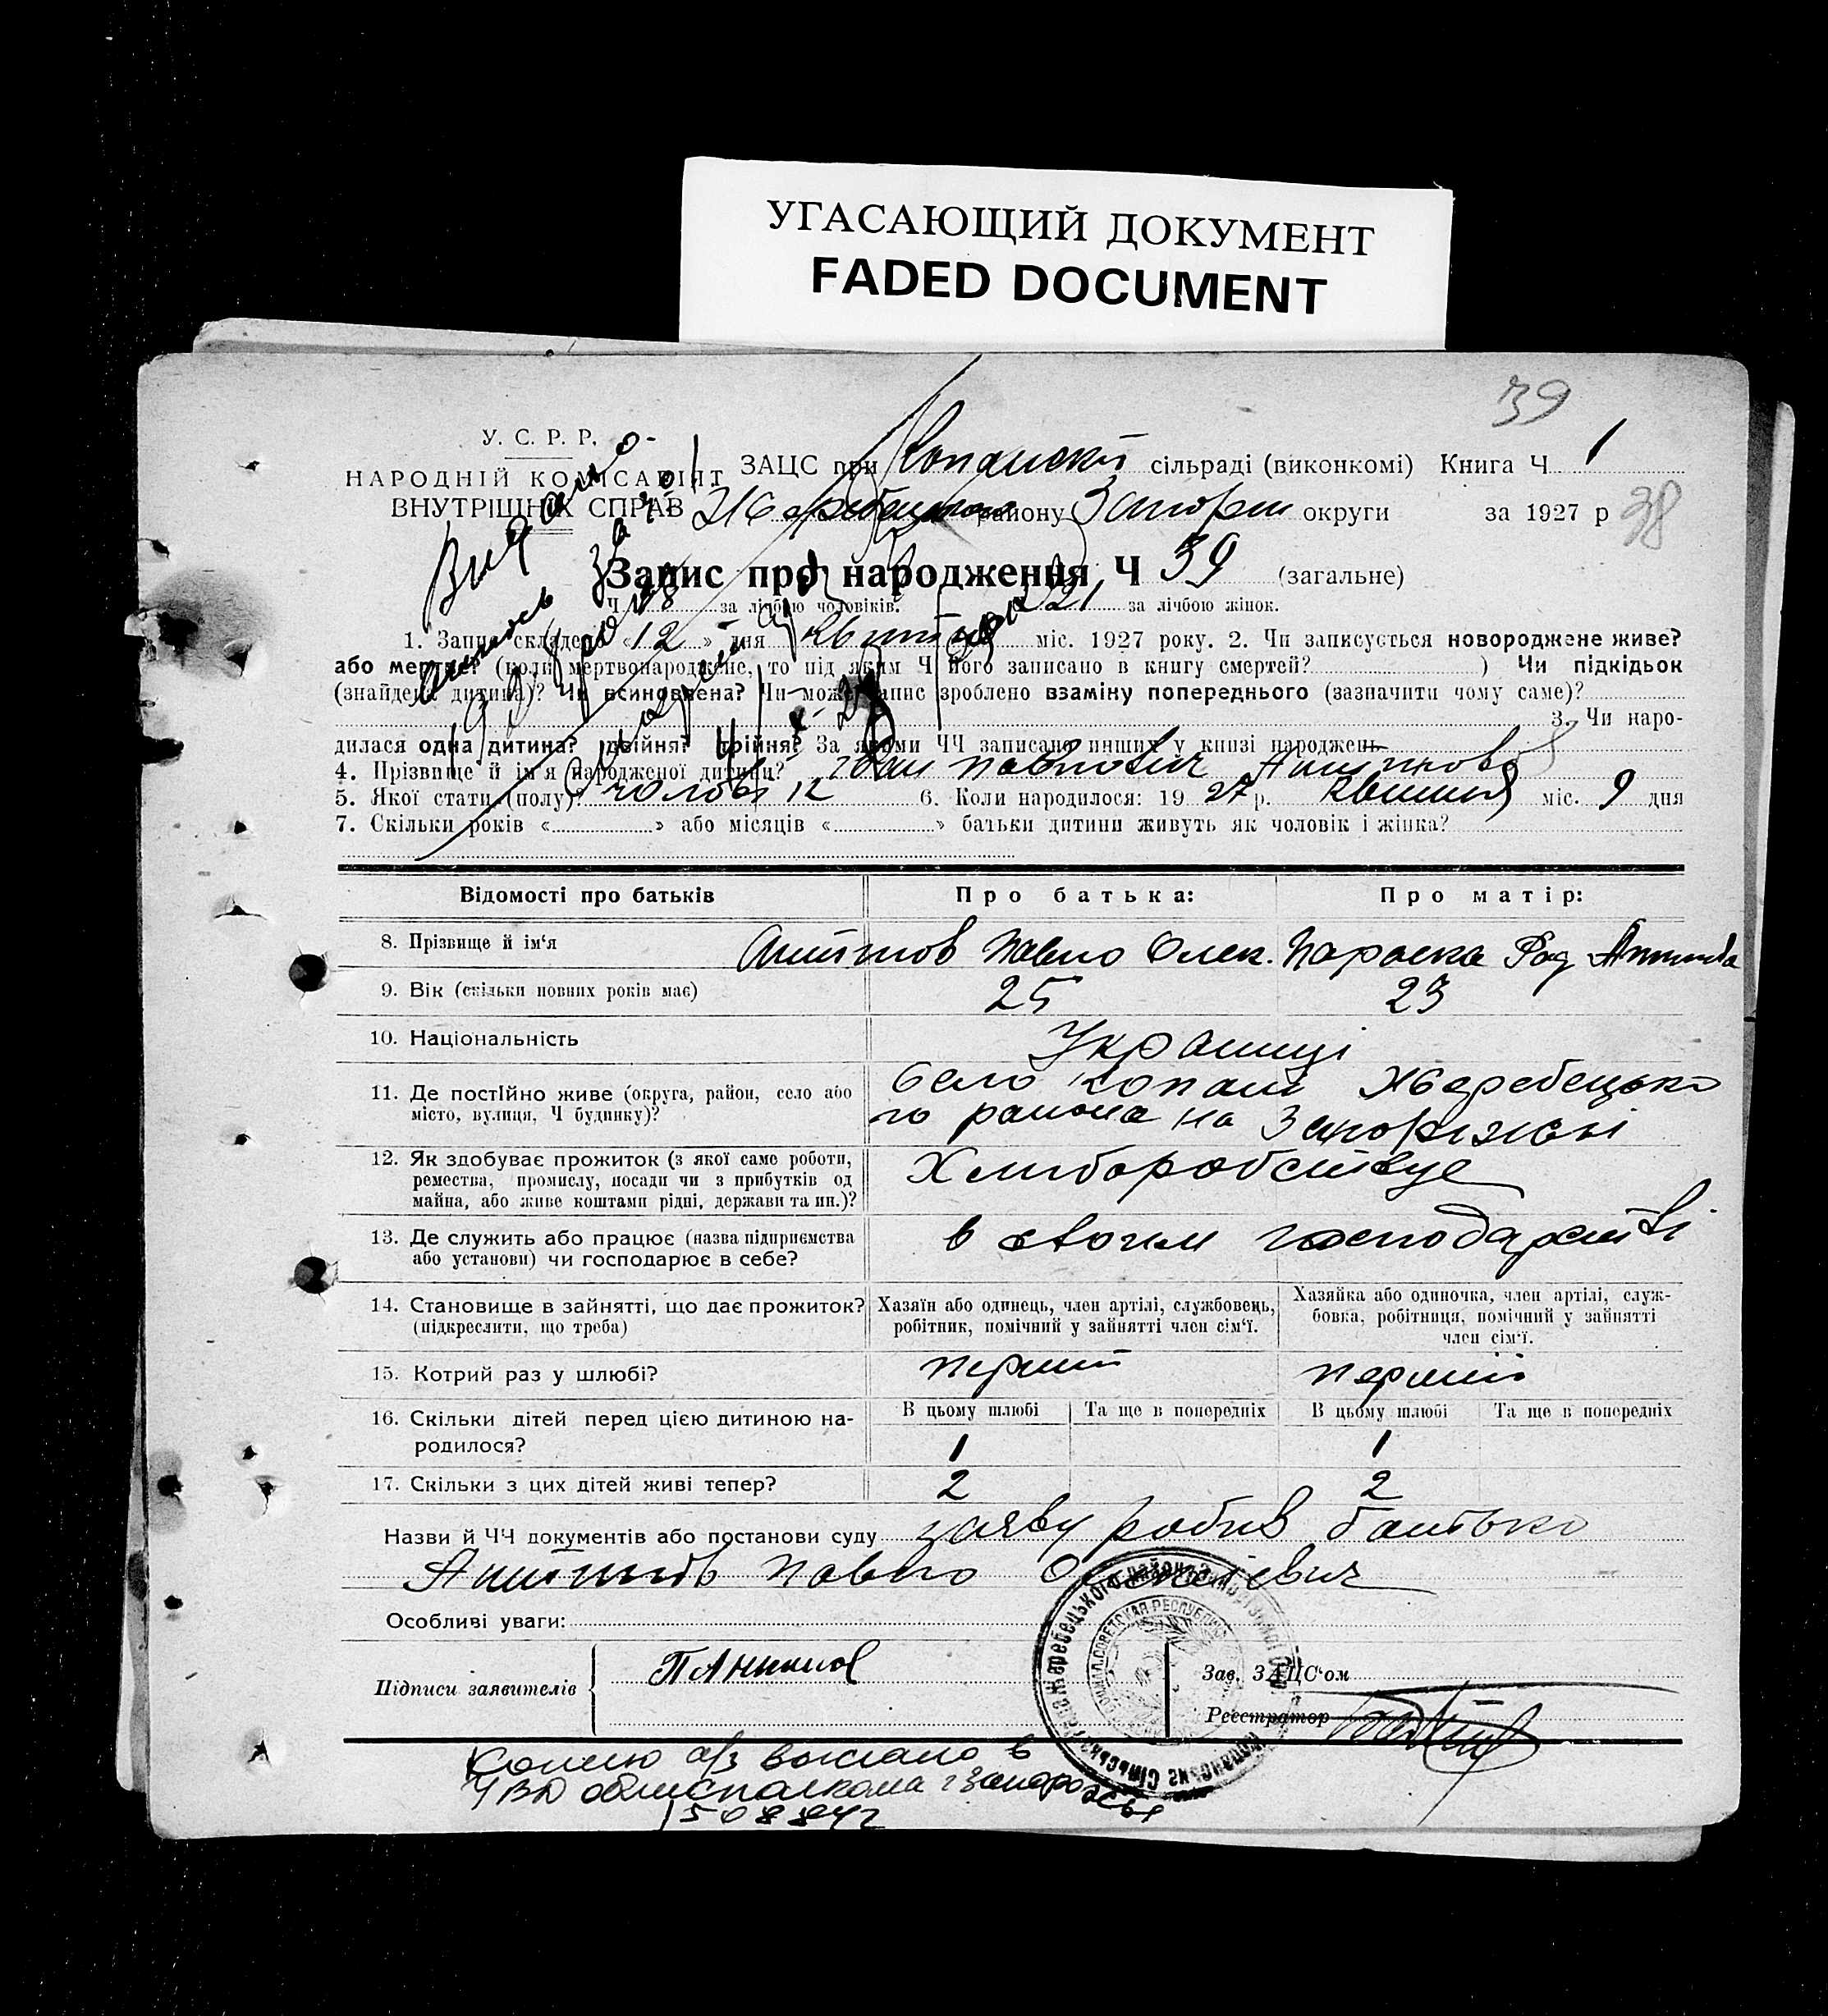 УГАСАЮЩИЙ ДОКУМЕНТ
FADED DOCUMENT
39
У. С. Р. Р.
НАРОДНІЙ КОМІСАРІЯТ
ВНУТРІШНІХ СПРАВ
ЗАЦС при Копанскі сільраді (виконкомі) Книга Ч 1
Жеребецьком району Запоріж округи за 1927 р
38
Запис про народження Ч 39 (загальне)
Ч 18 за лічбою чоловіків. 21 за лічбою жінок.
1. Запис складено «12» дня квітня міс. 1927 року. 2. Чи записується новороджене живе?
або мертве? (коли мертвонароджене, то під яким Ч його записано в книгу смертей? ) Чи підкідьок
(знайдена дитина)? Чи всиновлена? Чи може запис зроблено взаміну попереднього (зазначити чому саме)?
3. Чи наро-
дилася одна дитина? двійня? трійня? За якими ЧЧ записано инших у книзі народжень
4. Прізвище й ім'я народженої дитини? Іван Павлович
5. Якої стати (полу)? чоловік 6. Коли народилося: 1927 р. квітня міс. 9 дня
7. Скільки років « » або місяців « » батьки дитини живуть як чоловік і жінка?
Видано
Відомості про батьків Про батька: Про матір:
8. Прізвище й ім'я Павло Олек. Параска
9. Вік (скільки повних років має) 25 23
10. Національність Украинці
11. Де постійно живе (округа, район, село або
місто, вулиця, Ч будинку)?
село Копани Жеребецько
го района на Запоріжжі
12. Як здобуває прожиток (з якої саме роботи,
ремества, промислу, посади чи з прибутків од
майна, або живе коштами рідні, держави та ин.)?
Хлиборобствує
13. Де служить або працює (назва підприємства
або установи) чи господарює в себе?
в своим господарстві
14. Становище в зайнятті, що дає прожиток?
(підкреслити, що треба)
Хазяїн або одинець, член артілі, службовець,
робітник, помічний у зайнятті член сім'ї.
Хазяйка або одиночка, член артілі, служ-
бовка, робітниця, помічний у зайнятті
член сім'ї.
15. Котрий раз у шлюбі? перший перший
16. Скільки дітей перед цією дитиною на-
родилося?
В цьому шлюбі Та ще в попередніх В цьому шлюбі Та ще в попередніх
1 1
17. Скільки з цих дітей живі тепер? 2 2
Назви й ЧЧ документів або постанови суду заяву робив батько
Павло Олексієвич
Особливі уваги:
Підписи заявителів
Зав. ЗАЦС'ом
Реєстратор
Копию а/з выслано в
УВД облисполкома г Запорожья